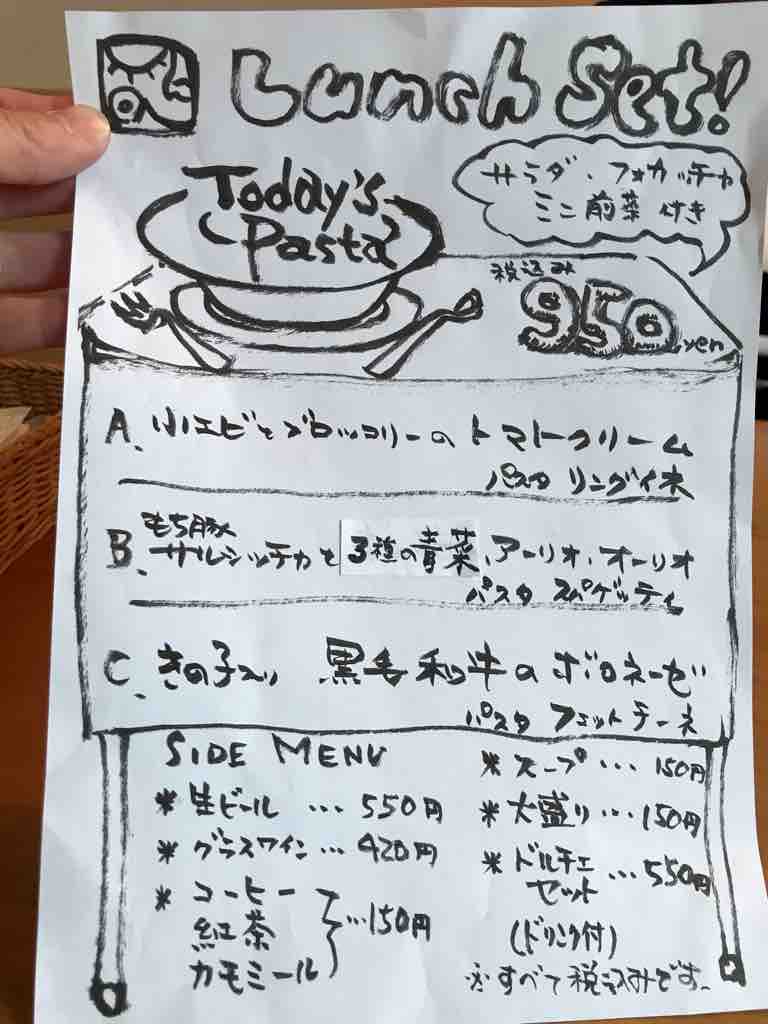 Lunch Set!
Today's
Pasta
サラダ・フォカッチャ
ミニ前菜付き
税込み
950yen
A. 小エビとブロッコリーのトマトクリーム
パスタ リングイネ
もち豚
B. サルシッチャと3種の青菜、アーリオ・オーリオ
パスタ スパゲッティ
C. きの子入り 黒毛和牛のボロネーゼ
パスタ フェットチーネ
SIDE MENU
* 生ビール … 550円
* グラスワイン … 420円
* コーヒー
紅茶
カモミール
…150円
* スープ … 150円
* 大盛り … 150円
* ドルチェ
セット
…550円
(ドリンク付)
※すべて税込みです。